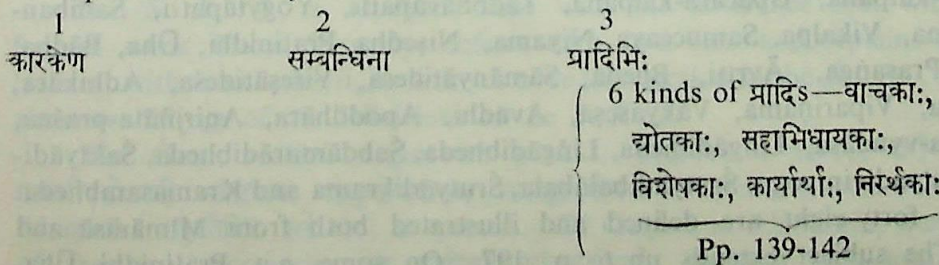 1 2 3
कारकेण सम्बन्धिना प्रादिभिः
6 kinds of प्रादिs—वाचकाः,
द्योतकाः, सहाभिधायकाः,
विशेषकाः, कार्यार्थाः, निरर्थकाः
Pp. 139-142